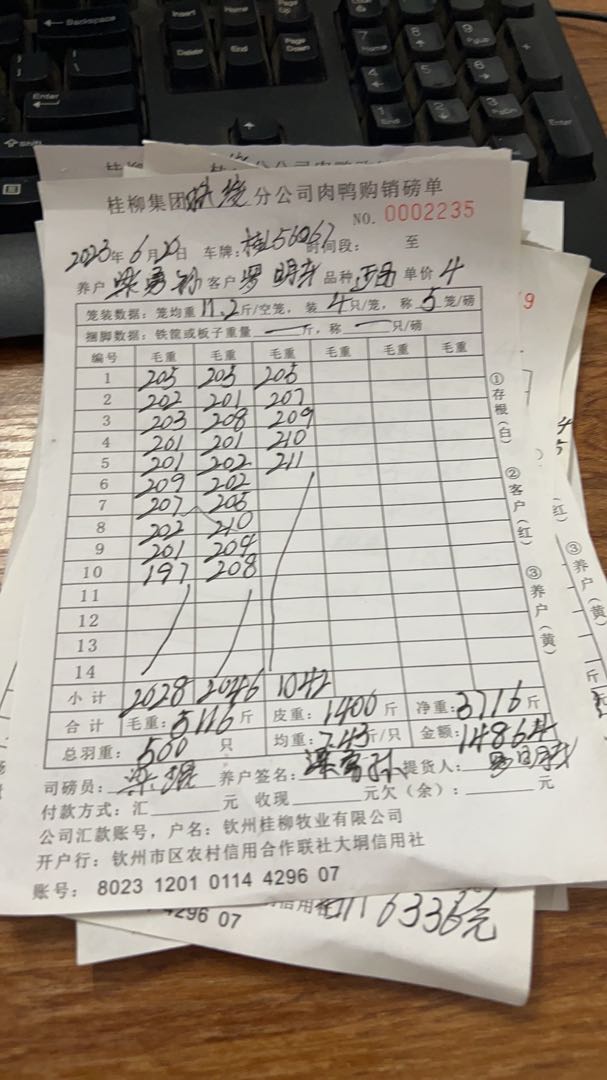 Backspace
Insert
Home
Page Up
Delete
End
Page Down
Enter
桂柳集团 分公司肉鸭购销磅单
NO. 0002235
2023年6月20日 车牌: 桂L56067 时间段: 至
养户 客户 罗明 品种 单价 4
笼装数据: 笼均重 11.2 斤/空笼, 装 4 只/笼, 称 5 笼/磅
捆脚数据: 铁筐或板子重量 — 斤, 称 — 只/磅
编号 毛重 毛重 毛重 毛重 毛重 毛重
1 205 205 205
2 202 201 207
3 203 208 209
4 201 201 210
5 201 202 211
6 209 202
7 207 205
8 202 210
9 201 204
10 197 208
11
12
13
14
小计 2028 2046 1042
合计 毛重: 5116 斤 皮重: 1400 斤 净重: 3716 斤
总羽重: 500 只 均重: 7.43 斤/只 金额: 14864
司磅员: 养户签名: 提货人:
付款方式: 汇 元 收现 元欠(余): 元
公司汇款账号, 户名: 钦州桂柳牧业有限公司
开户行: 钦州市区农村信用合作联社大垌信用社
账号: 8023 1201 0114 4296 07
①存根(白)
②客户(红)
③养户(黄)
4296 07
6336元